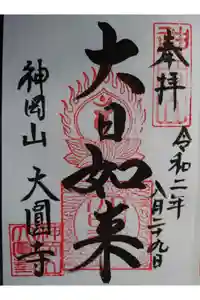 奉拝
令和二年
八月二十九日
大日如来
神岡山 大圓寺